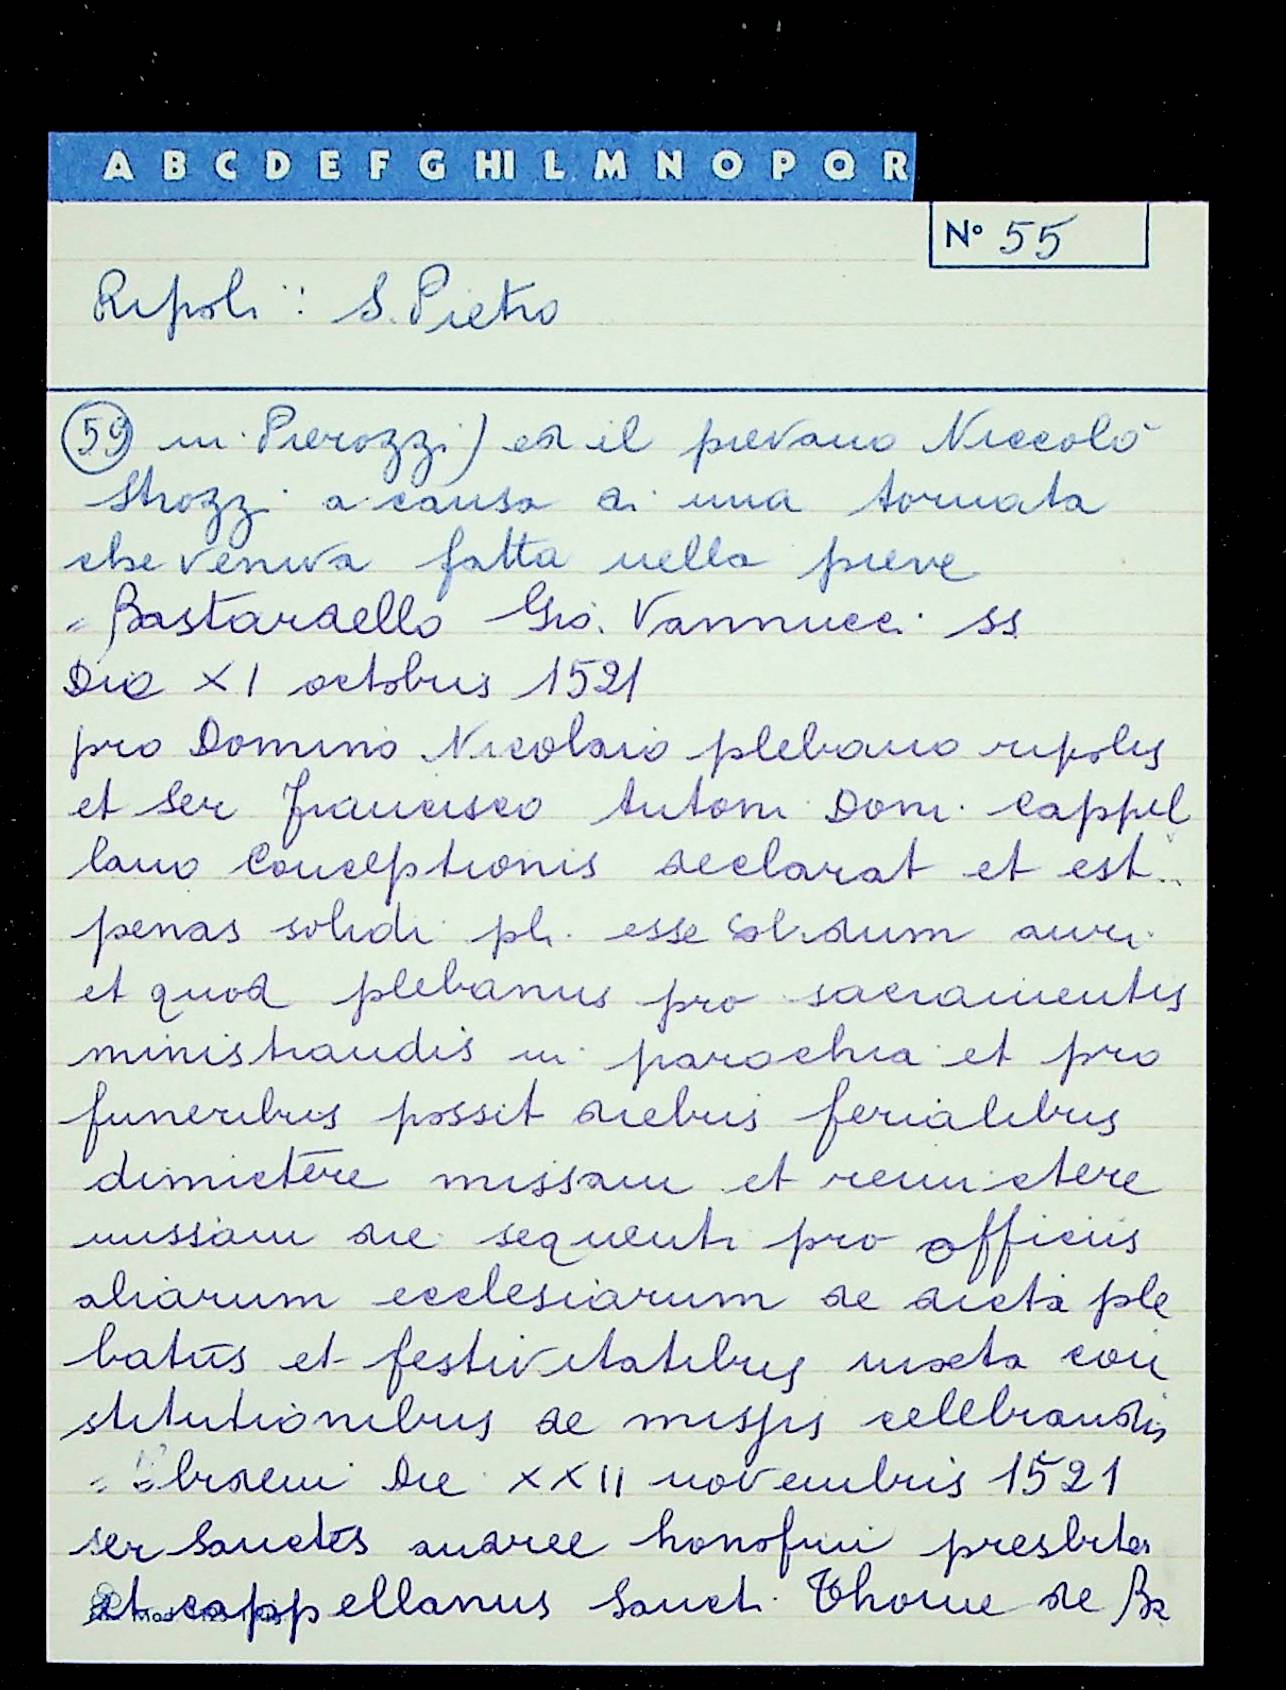 A B C D E F G HI L M N O P Q R
N° 55
Ripoli: S. Pietro
59 in Pierozzi) ed il pievano Niccolò
Strozzi a causa di una tornata
che veniva fatta nella pieve
" Bastardello Gio. Vannucci ss
Die XI octobris 1521
pro Domino Nicolaio plebano ripolis
et ser Francisco Antoni Dom. Cappel
lano Conceptionis declarat et est..
penas solidi pl. esse solidum auri
et quod plebanus pro sacramentis
ministrandis in parochia et pro
funeribus possit diebus ferialibus
dimictere missam et remictere
missam die sequenti pro officiis
aliarum ecclesiarum de dicta ple
batus et festivitatibus iuxta con
stitutionibus de missis celebrandis
" Ibidem Die XXII novembris 1521
ser Sanctes andree honofrii presbiter
et cappellanus Sancti Thome de Ba